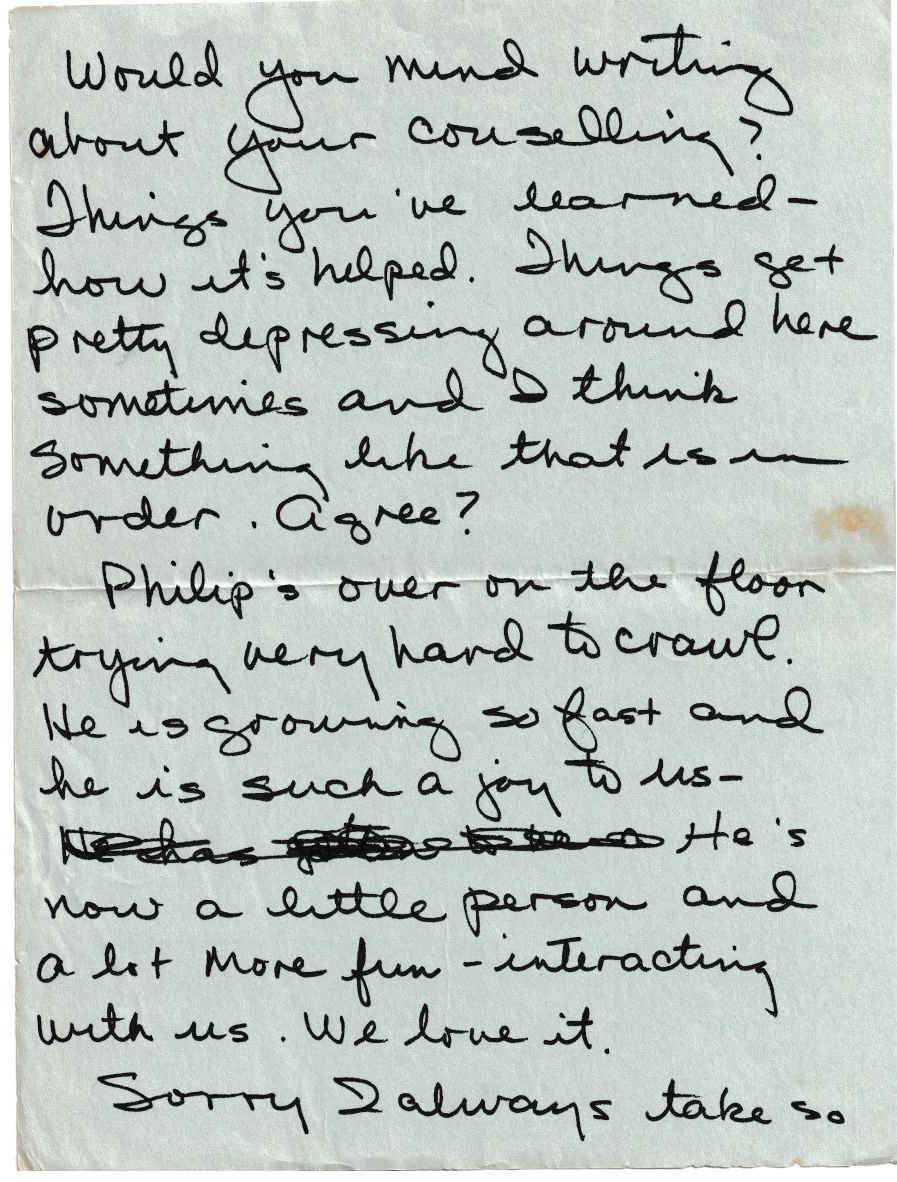 Would you mind writing
about your couselling?
Things you've learned-
how it's helped. Things get
pretty depressing around here
sometimes and I think
something like that is in
order. Agree?
Philip's over on the floor
trying very hard to crawl.
He is growing so fast and
he is such a joy to us-
He's
now a little person and
a lot more fun - interacting
with us. We love it.
Sorry I always take so